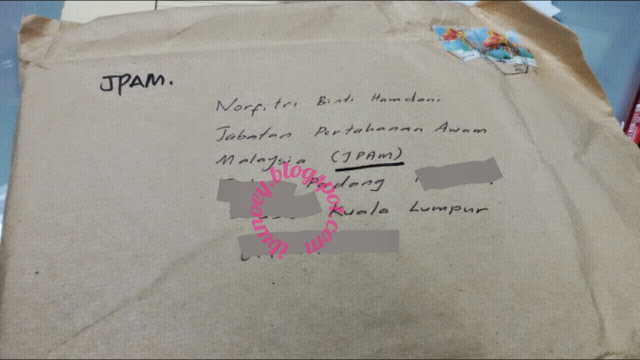 JPAM.
Norfitri Binti Hamdani
Jabatan Pertahanan Awam
Malaysia (JPAM)
Padang
Kuala Lumpur
ibunoey.blogspot.com